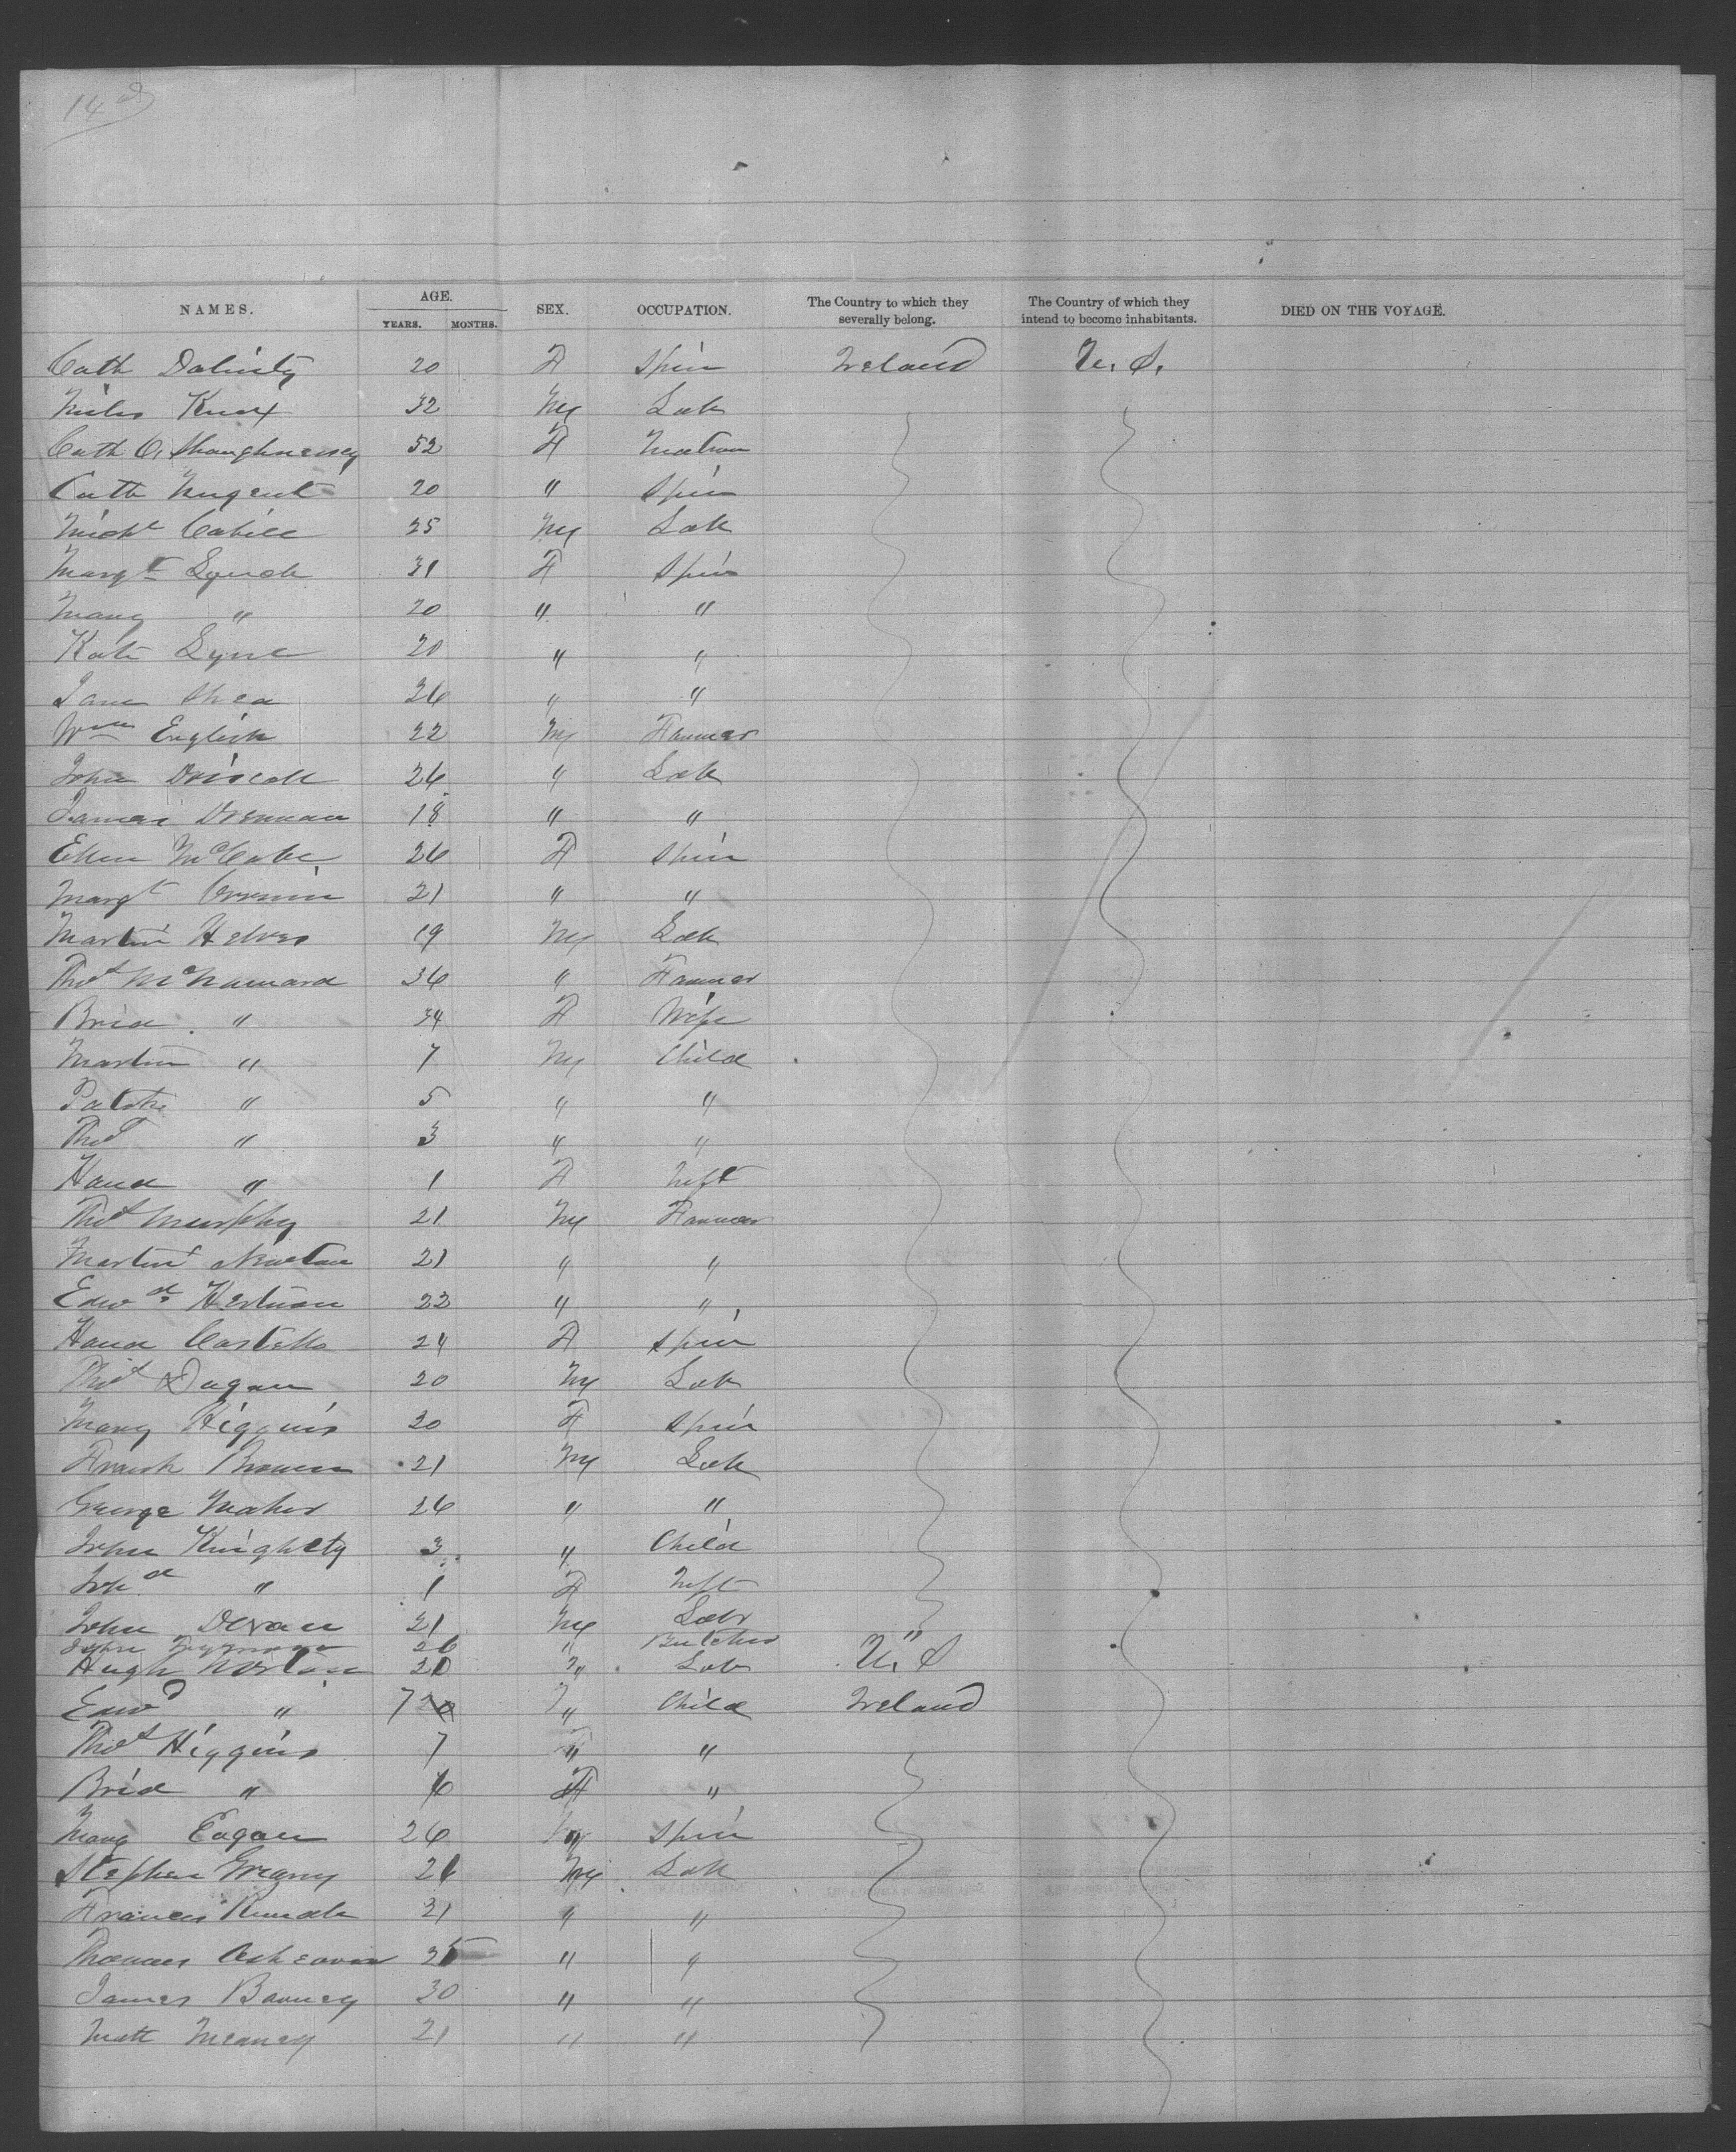 14
NAMES. AGE. YEARS. MONTHS. SEX. OCCUPATION. The Country to which they severally belong. The Country of which they intend to become inhabitants. DIED ON THE VOYAGE.
Cath 20 F Spin Ireland U.S.
Miles Knox 32 M Lab
Cath O'Shaughnessy 52 F Matron
Cath Nugent 20 " Spin
Michl Cahill 25 M Lab
Margt Lynch 31 F Spin
Mary " 20 " "
Kate Lyne 20 " "
Jane Shea 26 " "
Wm English 22 M Farmer
John Driscoll 26 " Lab
James Drennan 18 " "
Ellen McCabe 26 F Spin
Margt Cronin 21 " "
Martin 19 M Lab
Thos McNamara 36 " Farmer
Brid " 34 F Wife
Martin " 7 M Child
Patk " 5 " "
Thos " 3 " "
Hana " 1 F Inft
Thos Murphy 21 M Farmer
Martin 21 " "
Edwd 22 " "
Hana Costello 24 F Spin
Thos Dugan 20 M Lab
Mary Higgins 20 F Spin
Frank Brown 21 M Lab
George Maher 26 " "
John Knightly 3 " Child
" 1 F Inft
John Devan 21 M Labr
John 26 " Butcher "
Hugh Norton 20 " Lab U.S
Edwd " 7 " Child Ireland
Thos Higgins 7 " "
Brid " 6 F "
Mary Eagan 26 " Spin
Stephen Greany 26 M Lab
Francis 21 " "
Thomas 25 " "
James 30 " "
Matt Meaney 21 " "